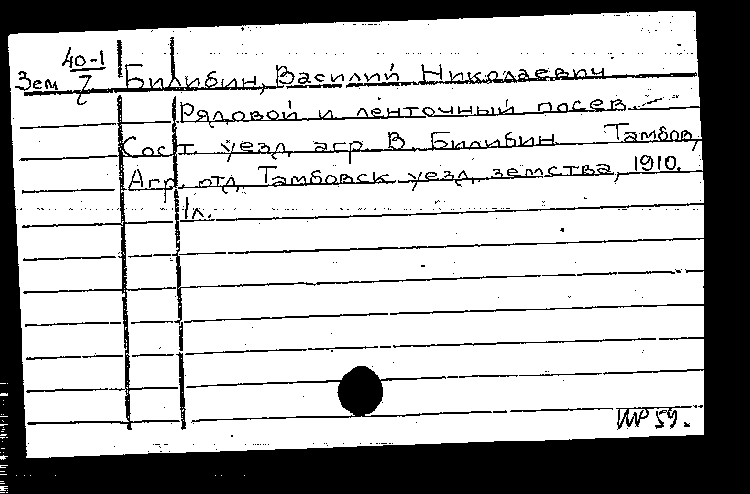 Зем 40-1/7
Билибин, Василий Николаевич
Рядовой и ленточный посев. —
Сост. уезд. агр. В. Билибин. Тамбов,
Агр. отд. Тамбовск. уезд. земства, 1910.
1л.
59.